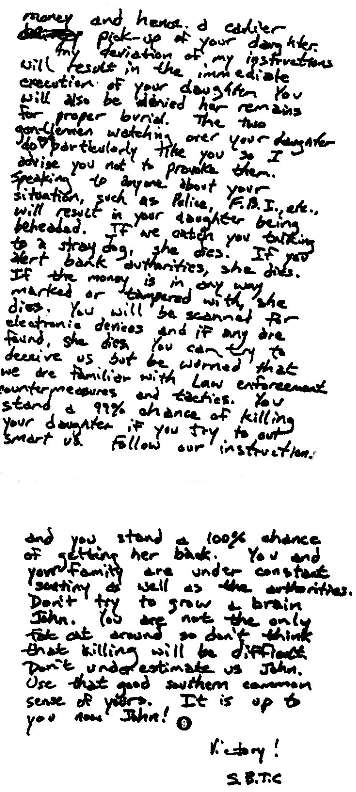 money and hence a earlier
pick-up of your daughter.
Any deviation of my instructions
will result in the immediate
execution of your daughter. You
will also be denied her remains
for proper burial. The two
gentlemen watching over your daughter
do particularly like you so I
advise you not to provoke them.
Speaking to anyone about your
situation, such as Police, F.B.I., etc.,
will result in your daughter being
beheaded. If we catch you talking
to a stray dog, she dies. If you
alert bank authorities, she dies.
If the money is in any way
marked or tampered with, she
dies. You will be scanned for
electronic devices and if any are
found, she dies. You can try to
deceive us but be warned that
we are familiar with Law enforcement
countermeasures and tactics. You
stand a 99% chance of killing
your daughter if you try to out
smart us. Follow our instructions
and you stand a 100% chance
of getting her back. You and
your family are under constant
scrutiny as well as the authorities.
Don't try to grow a brain
John. You are not the only
fat cat around so don't think
that killing will be difficult.
Don't underestimate us John.
Use that good southern common
sense of yours. It is up to
you now John!
Victory!
S.B.T.C